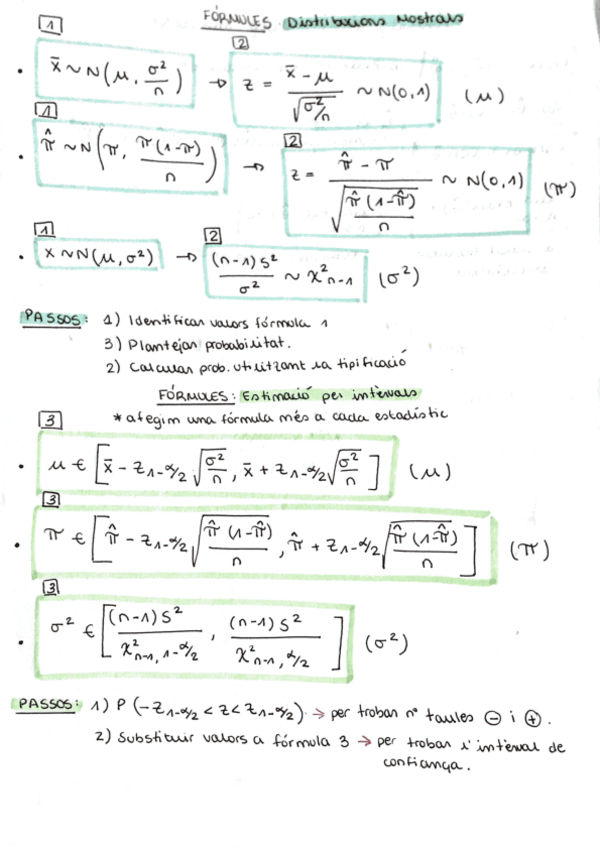 FÓRMULES Distribucions Mostrals
1 2
• x̄ ~ N(μ, σ²/n) → z = (x̄ - μ) / √(σ²/n) ~ N(0,1) (μ)
1 2
• π̂ ~ N(π, π(1-π)/n) → z = (π̂ - π) / √(π̂(1-π̂)/n) ~ N(0,1) (π)
1 2
• x ~ N(μ, σ²) → (n-1)s²/σ² ~ χ²n-1 (σ²)
PASSOS: 1) Identificar valors fórmula 1
3) Plantejar probabilitat.
2) Calcular prob. utilitzant la tipificació
FÓRMULES: Estimació per intervals
3 * afegim una fórmula més a cada estadístic
• μ ∈ [x̄ - z1-α/2 √(σ²/n), x̄ + z1-α/2 √(σ²/n)] (μ)
3
• π ∈ [π̂ - z1-α/2 √(π̂(1-π̂)/n), π̂ + z1-α/2 √(π̂(1-π̂)/n)] (π)
3
• σ² ∈ [(n-1)s²/χ²n-1, 1-α/2, (n-1)s²/χ²n-1, α/2] (σ²)
PASSOS: 1) P(-z1-α/2 < z < z1-α/2) → per trobar nº taules ⊖ i ⊕.
2) Substituir valors a fórmula 3 → per trobar l'interval de
confiança.